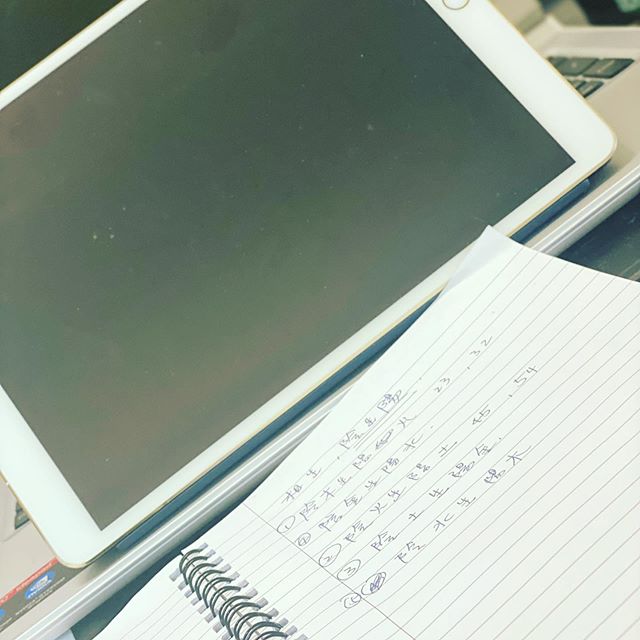 相生，陰生陽．
①陰木生陽火 23，32
④陰金生陽水．
②陰火生陽土 45，54
③陰土生陽金．
⑤陰水生陽木